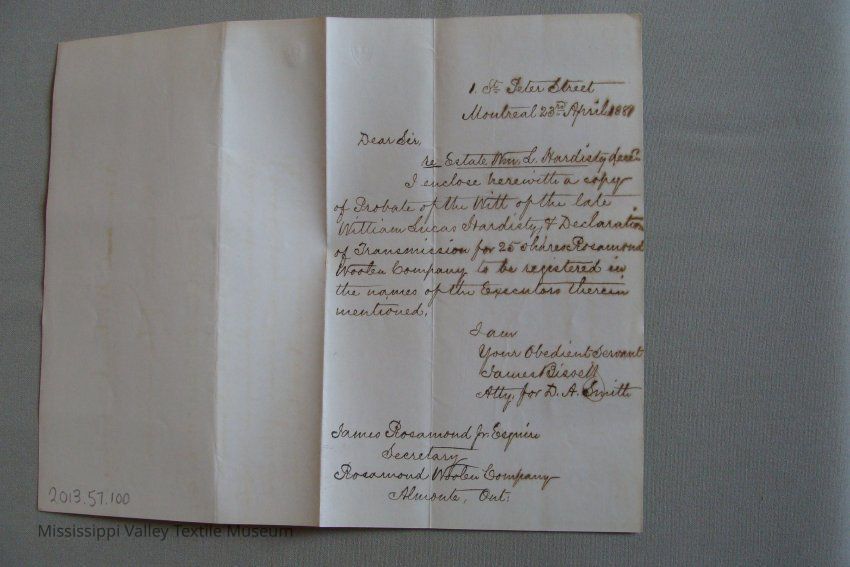 1. St. Peter Street
Montreal 23rd April 1881
Dear Sir,
re Estate Wm. L. Hardisty decd.
I enclose herewith a copy
of Probate of the Will of the late
William Lucas Hardisty, & Declaration
of Transmission for 25 shares Rosamond
Woolen Company to be registered in
the names of the Executors therein
mentioned.
I am
Your Obedient Servant
James Bissett
Atty. for D. A. Smith
James Rosamond Jr. Esquire
Secretary
Rosamond Woolen Company
Almonte, Ont:
2013.57.100
Mississippi Valley Textile Museum